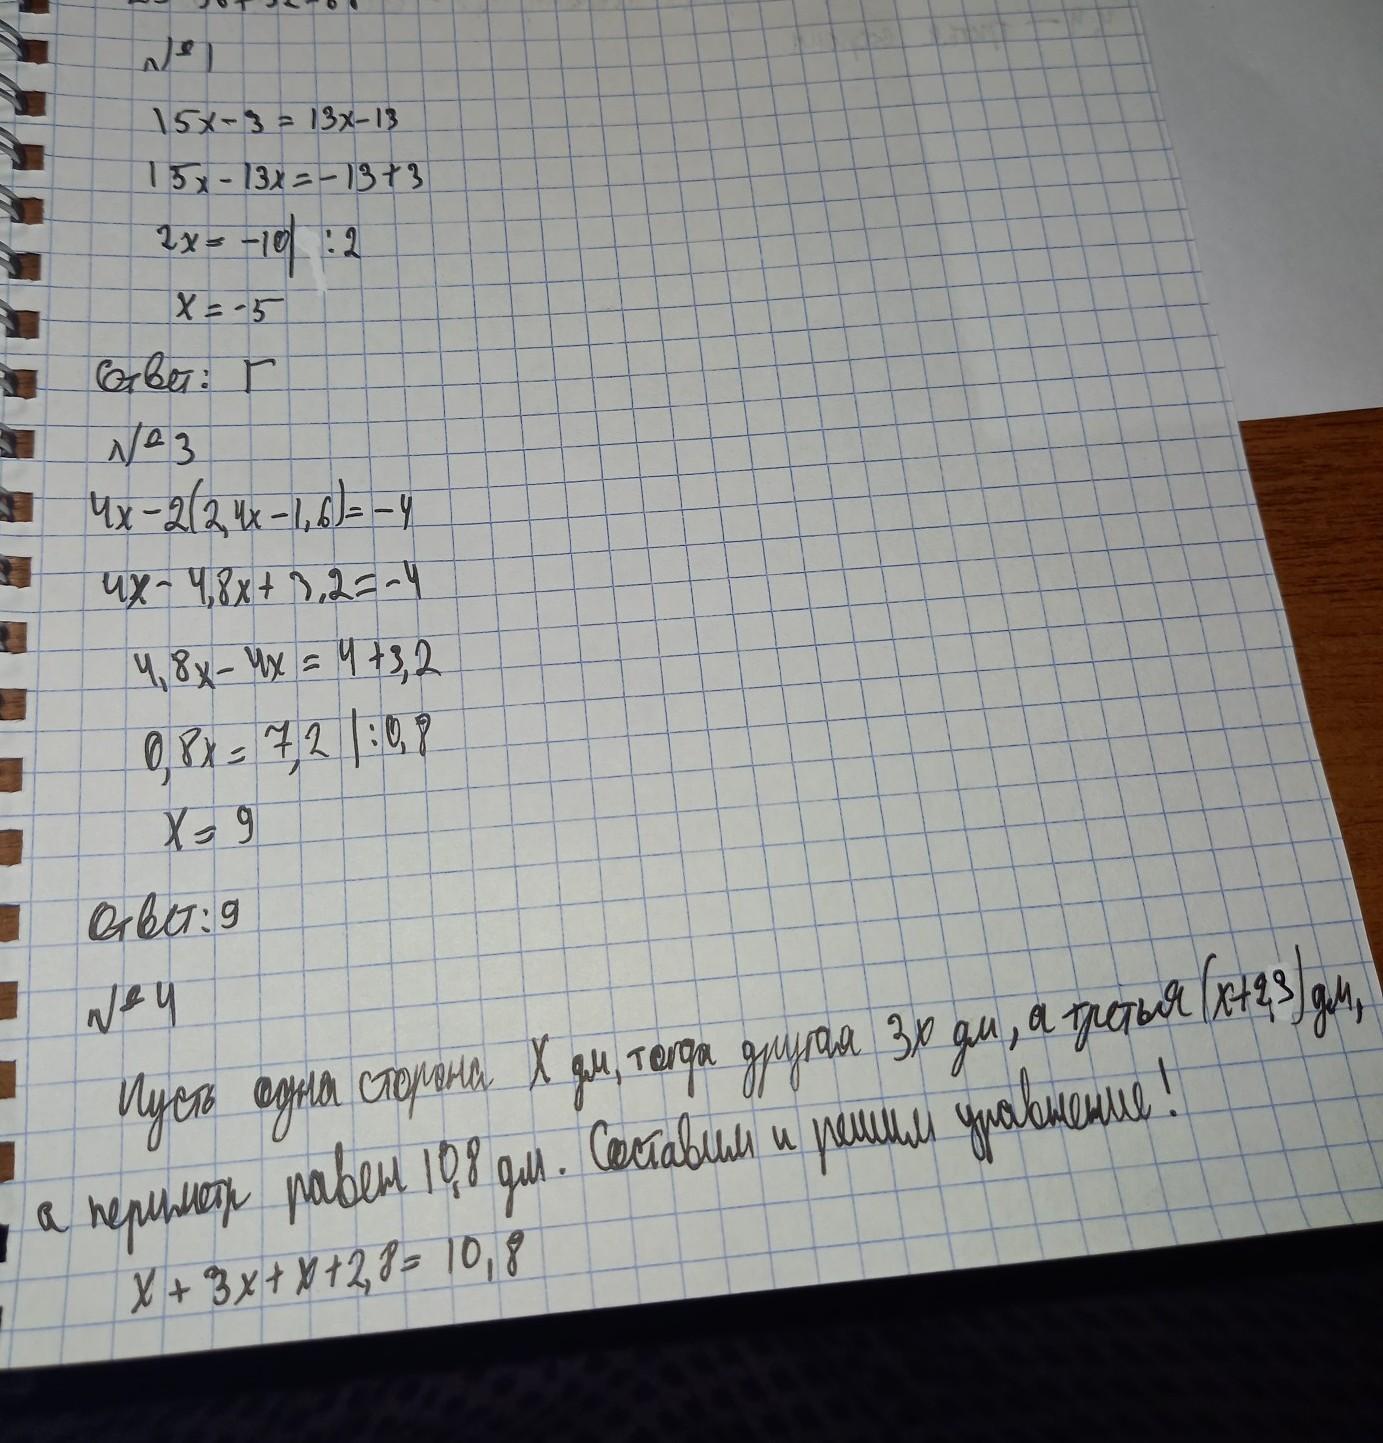 №1
15x-3=13x-13
15x-13x=-13+3
2x=-10| :2
x=-5
Ответ: Г
№3
4x-2(2,4x-1,6)=-4
4x-4,8x+3,2=-4
4,8x-4x=4+3,2
0,8x=7,2 |:0,8
x=9
Ответ: 9
№4
Пусть одна сторона x дм, тогда другая 3x дм, а третья (x+2,3) дм,
а периметр равен 10,8 дм. Составим и решим уравнение!
x+3x+x+2,8=10,8